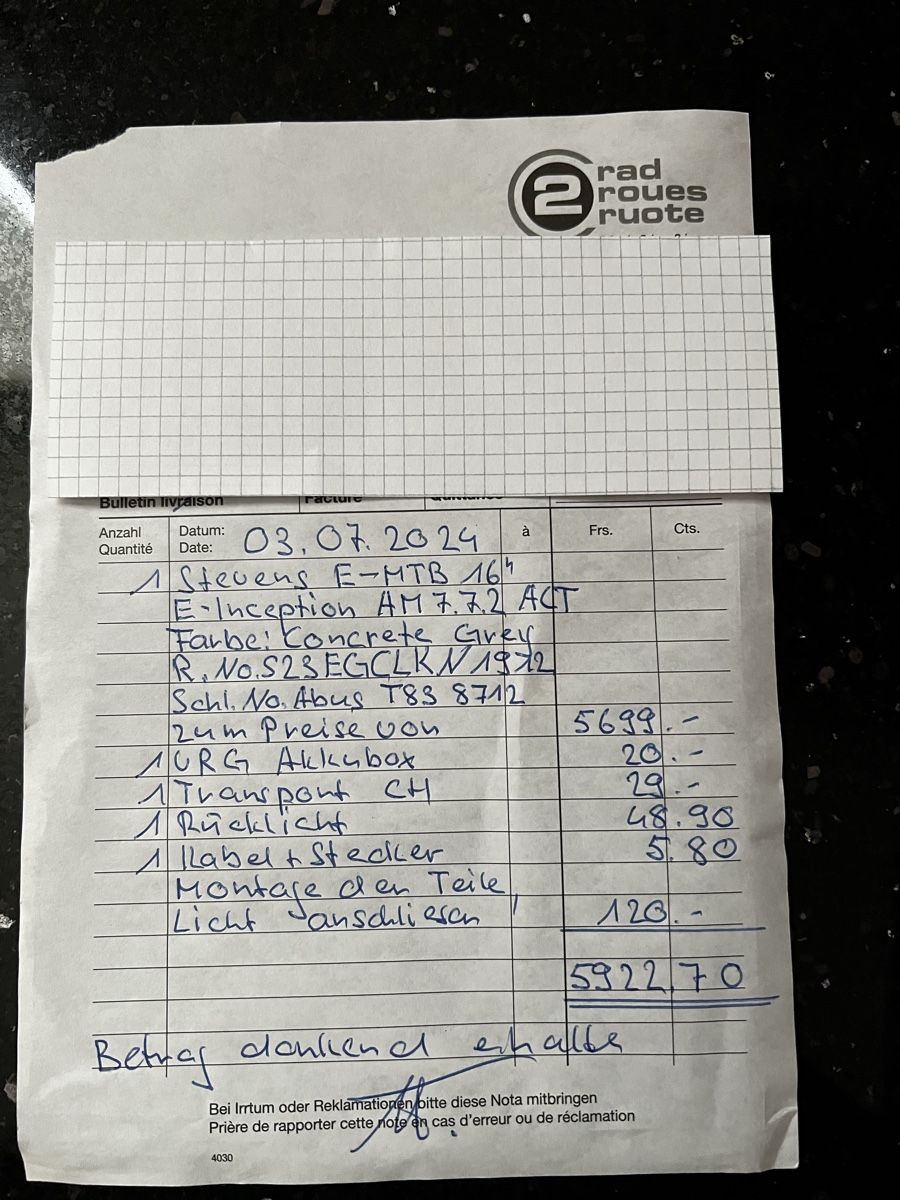 2 rad
roues
ruote
Bulletin livraison Facture Quittance
Anzahl Datum: à Frs. Cts.
Quantité Date: 03.07.2024
1 Stevens E-MTB 16"
E-Inception AM 7.7.2 ACT
Farbe: Concrete Grey
R.No.S23EGCLKN1972
Schl.No.Abus T83 8712
zum Preise von 5699.-
1 URG Akkubox 20.-
1 Transport CH 29.-
1 Rücklicht 48.90
1 Kabel + Stecker 5.80
Montage der Teile,
Licht anschliesen 120.-
5922.70
Betrag dankend erhalte
Bei Irrtum oder Reklamationen bitte diese Nota mitbringen
Prière de rapporter cette note en cas d'erreur ou de réclamation
4030